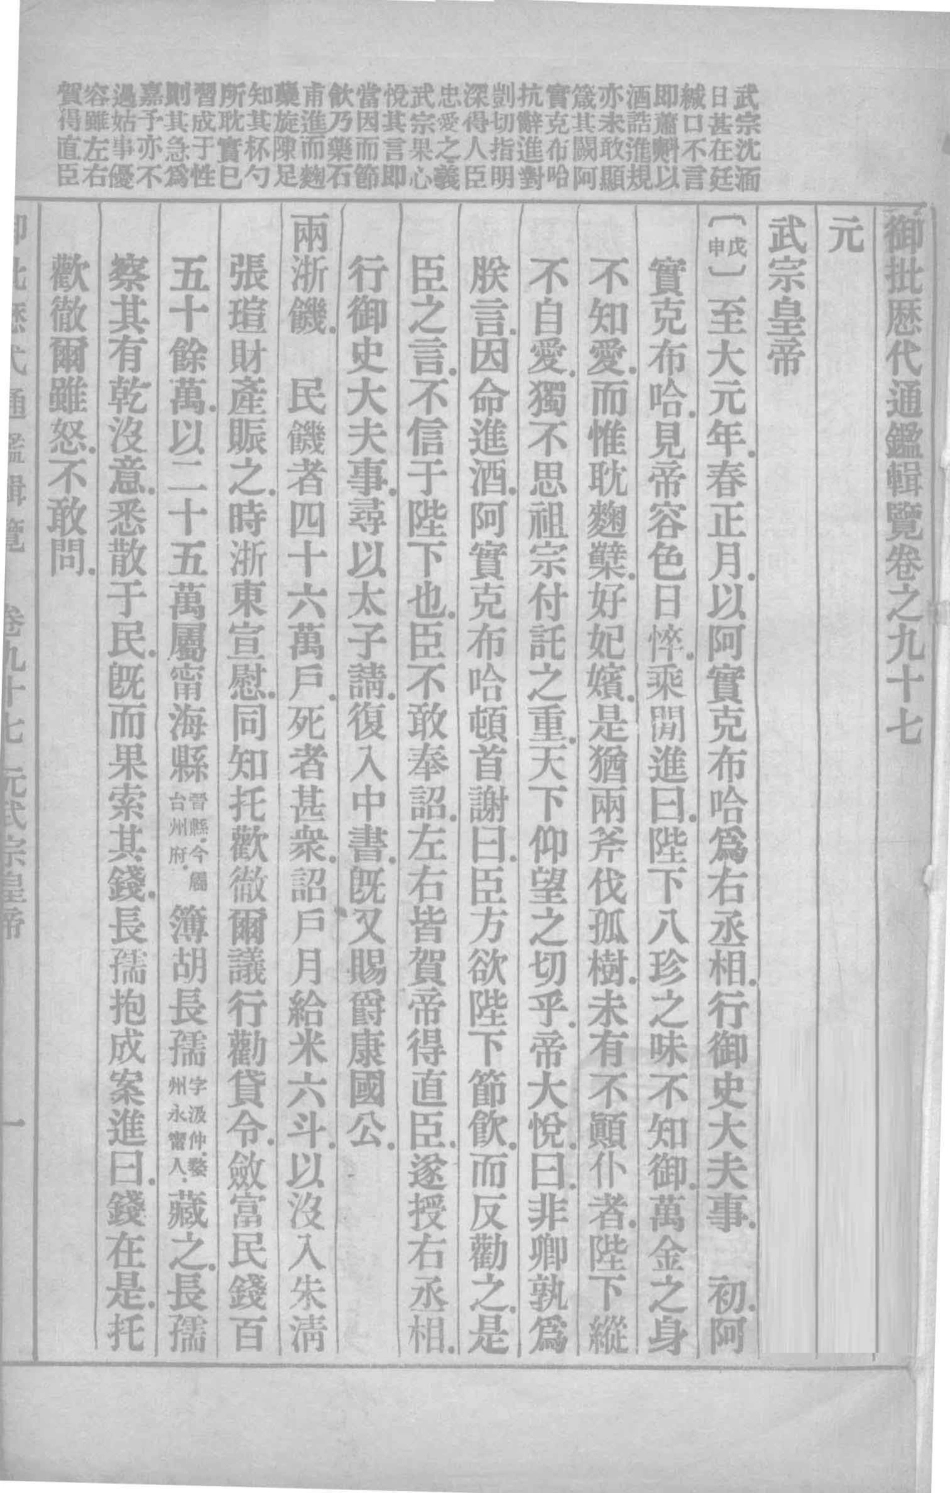 武宗沈湎
日甚在廷
緘口不言
即蕭㪺以
酒誥進規
亦未敢顯
箴其闕阿
實克布哈
抗辭進對
剴切指明
深得人臣
忠愛之義
武宗果心
悅其言即
當因而節
飲乃藥石
甫進而麴
櫱旋陳足
知其杯勺
所耽實已
習成于性
則其急爲
嘉予亦不
過姑事優
容雖左右
賀得直臣
御批歷代通鑑輯覽卷之九十七
元
武宗皇帝
〔戊申〕至大元年.春正月.以阿實克布哈爲右丞相.行御史大夫事.　初.阿
實克布哈.見帝容色日悴.乘閒進曰.陛下八珍之味不知御.萬金之身
不知愛.而惟耽麴櫱.好妃嬪.是猶兩斧伐孤樹.未有不顚仆者.陛下縱
不自愛.獨不思祖宗付託之重.天下仰望之切乎.帝大悅.曰.非卿孰爲
朕言.因命進酒.阿實克布哈頓首謝曰.臣方欲陛下節飮.而反勸之.是
臣之言.不信于陛下也.臣不敢奉詔.左右皆賀帝得直臣.遂授右丞相.
行御史大夫事.尋以太子請.復入中書.旣又賜爵康國公.
兩浙饑.　民饑者四十六萬戶.死者甚衆.詔戶月給米六斗.以沒入朱淸
張瑄財產賑之.時浙東宣慰.同知托歡徹爾議行勸貸令.斂富民錢百
五十餘萬.以二十五萬屬甯海縣晉縣.今屬台州府.簿胡長孺字汲仲.婺州永甯人.藏之.長孺
察其有乾沒意.悉散于民.旣而果索其錢.長孺抱成案進曰.錢在是.托
歡徹爾雖怒.不敢問.
御批歷代通鑑輯覽　卷九十七　元武宗皇帝　一